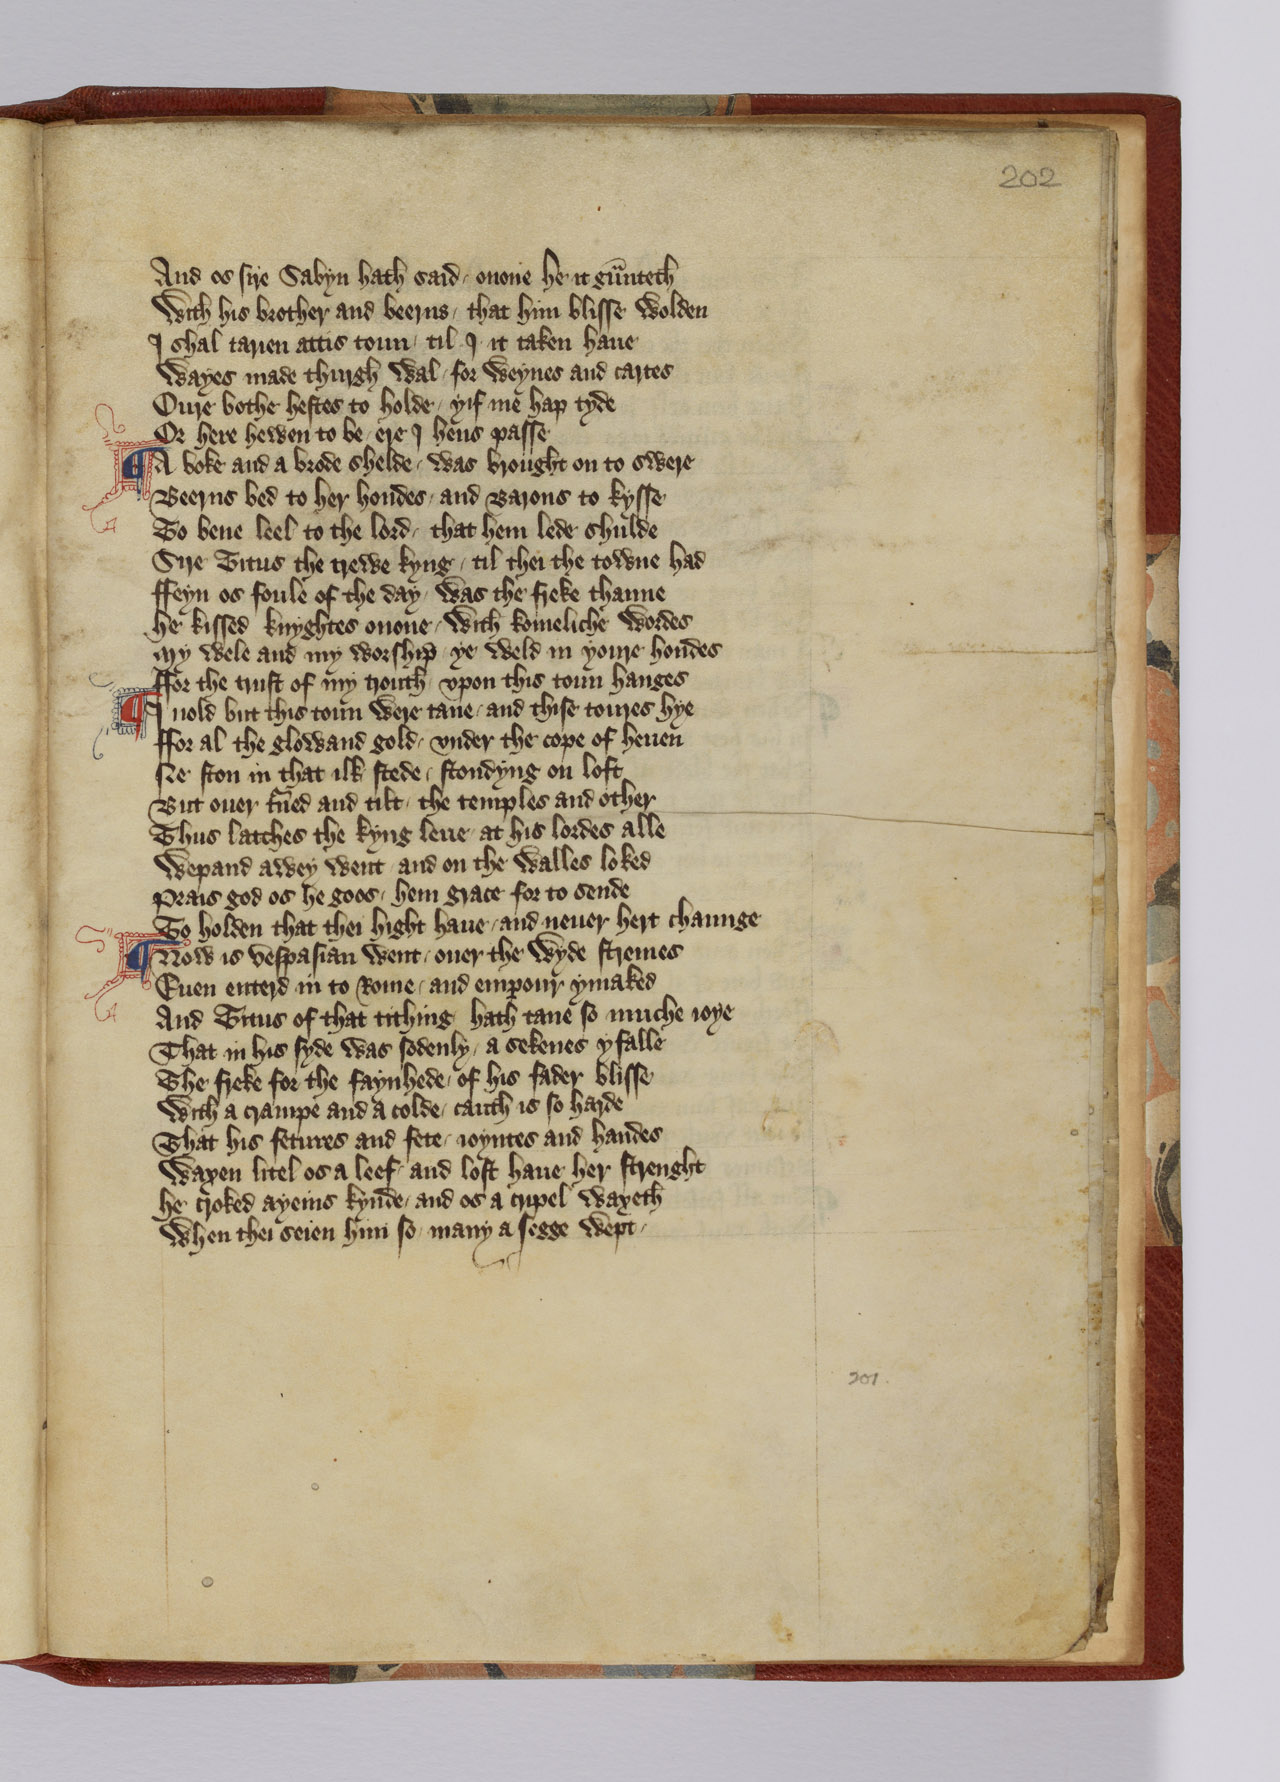 202
And os sire Sabyn hath said / onone he it gūnteth
With his brother and beerns / that him blisse wolden
I shal tarien attis toun / til I it taken haue
Wayes made thurgh wal / for weynes and cartes
Oure bothe hestes to holde / yif me hap tyde
Or here hewen to be / ere I hens passe
¶ A boke and a brode shelde / was brought on to swere
Beerns bed to her hondes / and Barons to kysse
To bene leel to the lord / that hem lede shulde
Sire Titus the trewe kyng / til thei the towne had
ffeyn os foule of the day / was the freke thanne
he kissed knyghtes onone / with komeliche wordes
my wele and my worship / ye weld in youre hondes
ffor the trust of my trouth / vpon this toun hanges
¶ I nold but this toun were tane / and thise toures hye
ffor al the glowand gold / vnder the cope of heuen
Ne ston in that ilk stede / stondyng on loft
But ouer t̄ned and tilt / the temples and other
Thus latches the kyng leue / at his lordes alle
Wepand awey went / and on the walles loked
Prais god os he goos / hem grace for to sende
To holden that thei hight haue / and neuer hert chaunge
¶ Now is vespasian went / ouer the wyde stremes
Euen enterd in to Rome / and emp̄our ymaked
And Titus of that tithing / hath tane so muche ioye
That in his syde was sodenly / a sekenes yfalle
The freke for the faynhede / of his fader blisse
With a crampe and a colde / cauth is so harde
That his fetures and fete / ioyntes and handes
Waxen litel os a leef / and lost haue her strenght
he croked ayeins kynde / and os a cripel waxeth
When thei seien him so / many a segge wept /
201.